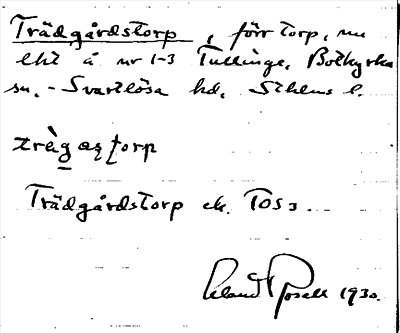 Trädgårdstorp, förr torp, nu
lht å nr 1-3 Tullinge, Botkyrka
sn. - Svartlösa hd, Sthlms l.
trägaṣtorp
Trädgårdstorp ek. TOS 3.
Rosell 1930.